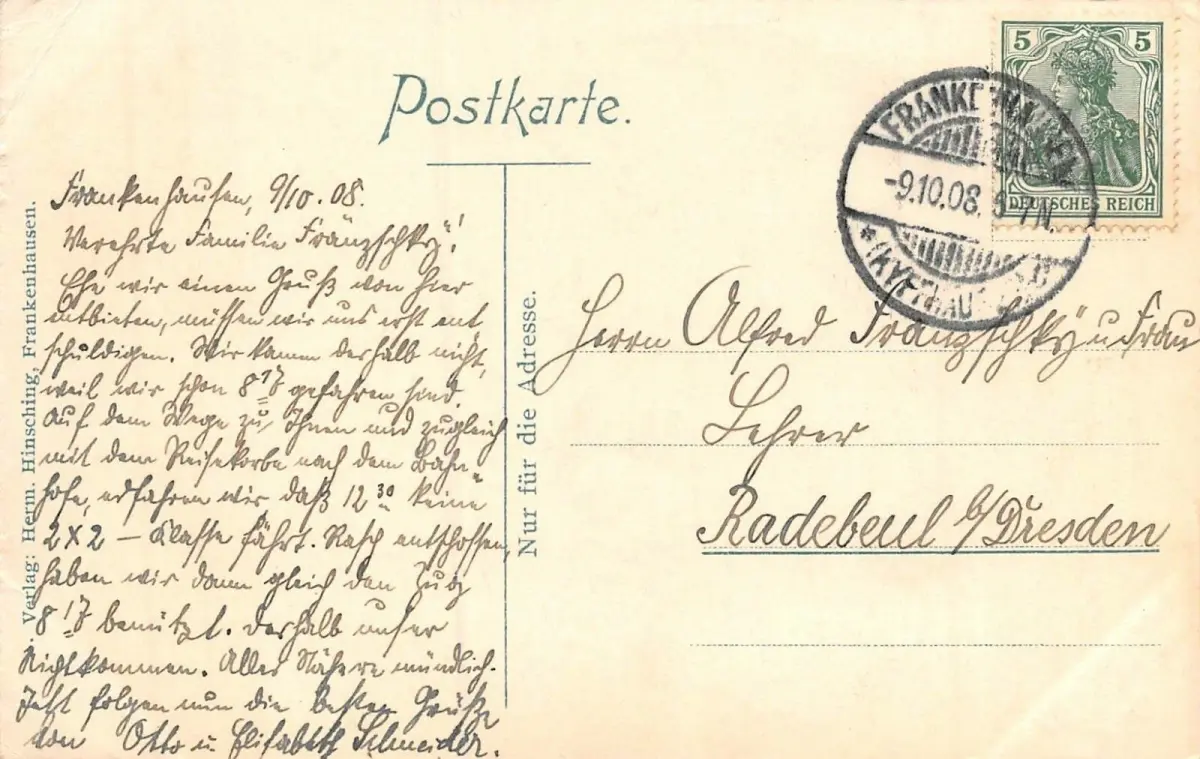 Postkarte.
Frankenhausen, 9/10. 08.
Verehrte Familie Fränzschky!
Ehe wir einen Gruß von hier
entbieten, müssen wir uns erst ent
schuldigen. Wir kamen deshalb nicht,
weil wir schon 8 17 gefahren sind.
Auf dem Wege zu Ihnen und zugleich
mit dem Reisekorbe nach dem Bahn-
hofe, erfahren wir daß 12 30 keine
2 x 2 – Klasse fährt. Rasch entschossen,
haben wir dann gleich den Zug
8 17 benützt. Deshalb unser
Nichtkommen. Alles Nähere mündlich.
Jetzt folgen nun die besten Grüße
von Otto u Elisabeth Schneider.
Verlag: Herm. Hinsching, Frankenhausen.
Nur für die Adresse.
5 5
DEUTSCHES REICH
FRANKENHAUSEN
-9.10.08. 5-7 N.
* (KYFFHÄUSER)
Herrn Alfred Franzschky u Frau
Lehrer
Radebeul b/Dresden